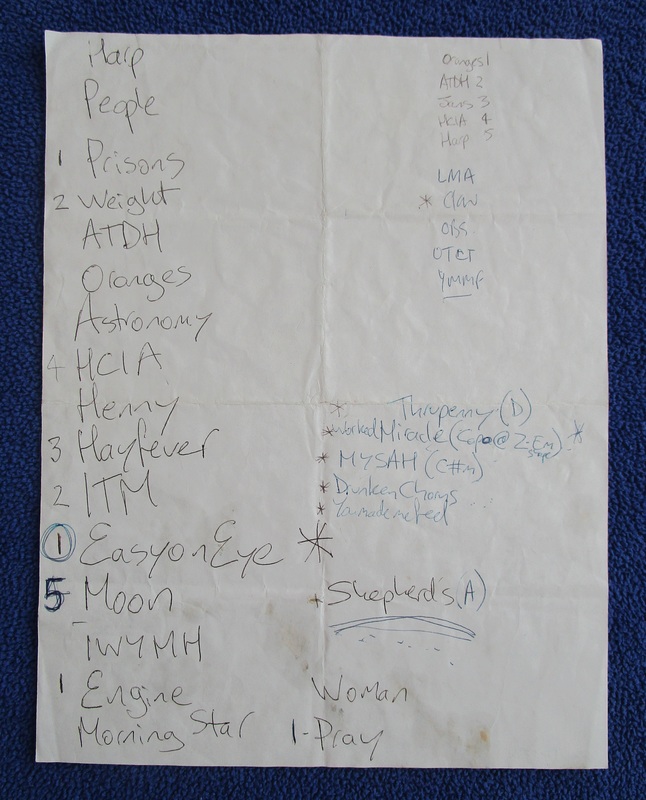 Harp
People
1 Prisons
2 Weight
ATDH
Oranges
Astronomy
4 HCIA
Henny
3 Hayfever
2 ITM
1 EasyonEye *
5 Moon
TWYMH
1 Engine
Morning Star
Oranges 1
ATDH 2
3
HCIA 4
Harp 5
LMA
* Claw
OBS
UTCT
YMMF
* Thrupenny (D)
* Worked Miracle (Capo@2-Em) *
* MYSAH (C#m)
* Drunken Chorus
* Youmademefeel
* Shepherds (A)
Woman
1- Pray